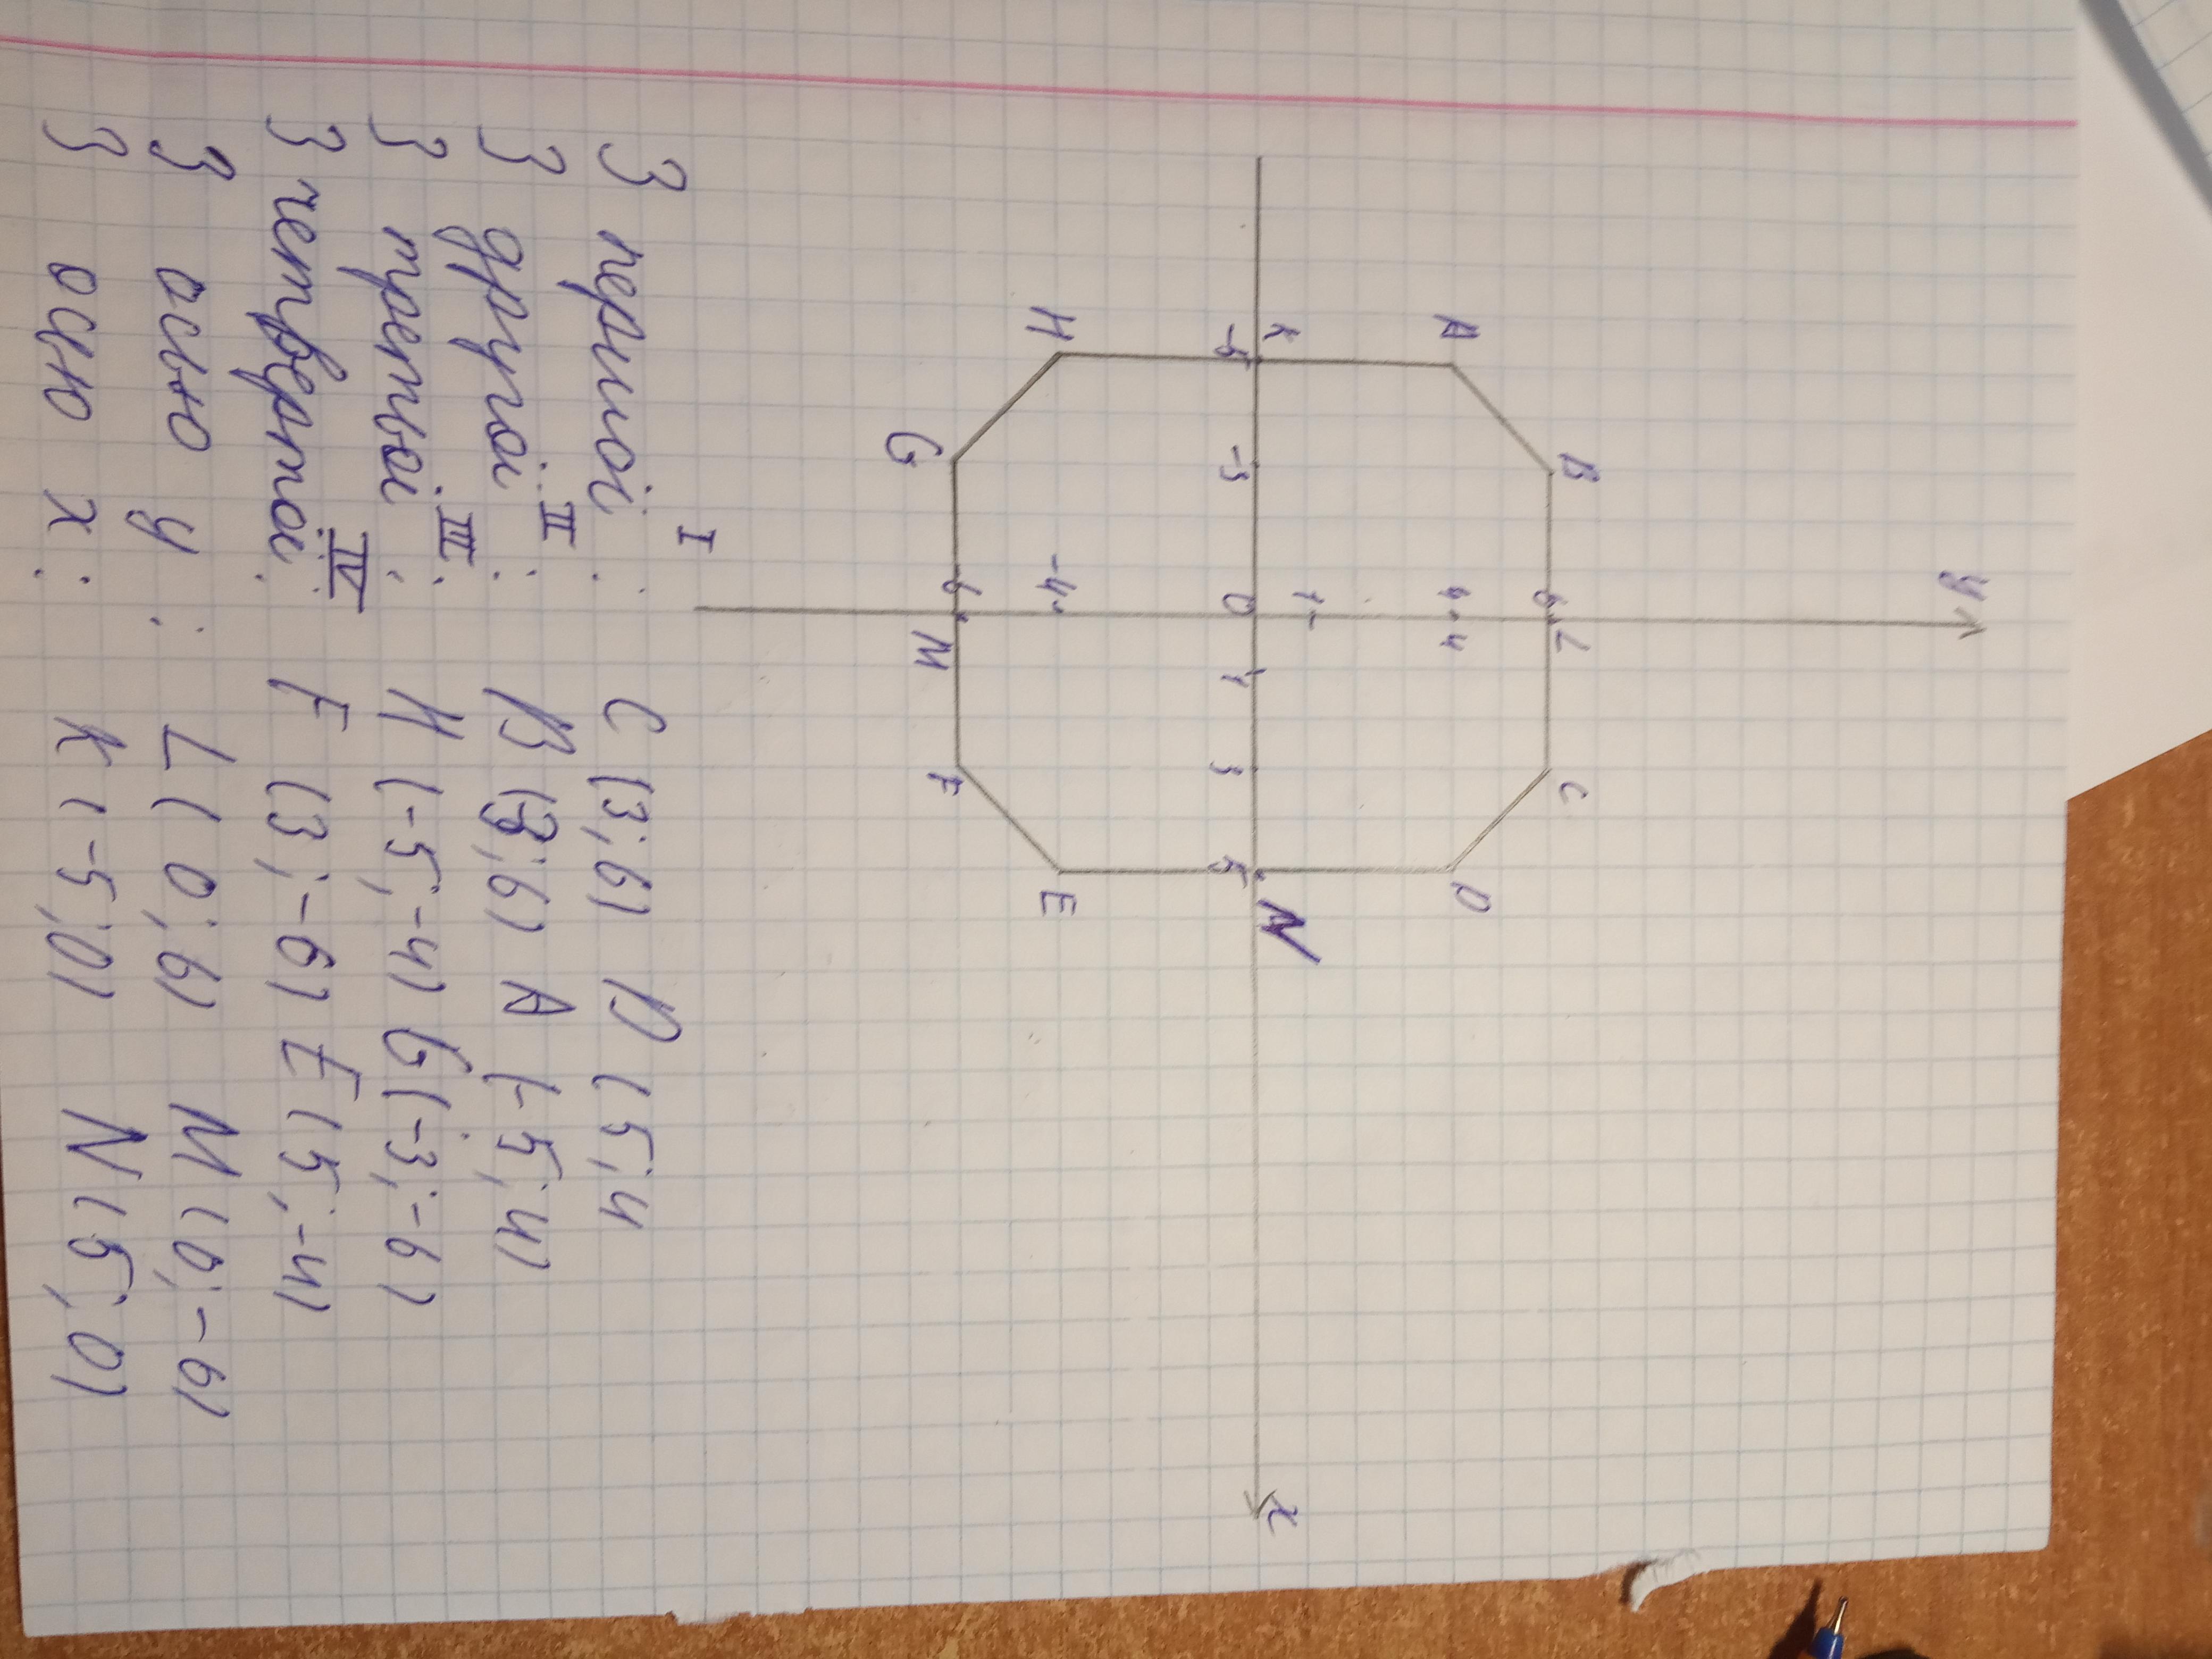 y
B 6 L C
A 4 4 D
1
K N
-5 -3 0 1 3 5 x
-4
H E
6
G M F
I
З першої : C (3;6) D (5;4
З другої II : B (-3;6) A (-5;4)
З третьої III : H (-5;-4) G (-3;-6)
З четвертої IV : F (3;-6) E (5;-4)
З осью y : L (0;6) M (0;-6)
З осю x : K (-5;0) N (5;0)